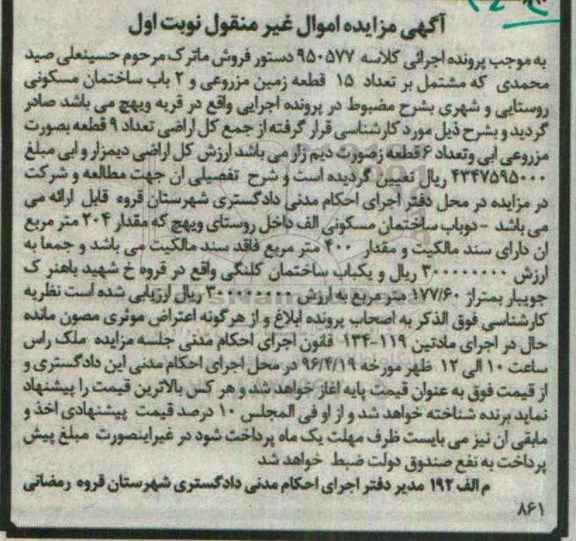 آگهی مزایده اموال غیر منقول نوبت اول
به موجب پرونده اجرائی کلاسه ۹۵۰۵۷۷ دستور فروش ماترک مرحوم حسینعلی صید
محمدی که مشتمل بر تعداد ۱۵ قطعه زمین مزروعی و ۲ باب ساختمان مسکونی
روستایی و شهری بشرح مضبوط در پرونده اجرایی واقع در قریه ویهچ می باشد صادر
گردید و بشرح ذیل مورد کارشناسی قرار گرفته از جمع کل اراضی تعداد ۹ قطعه بصورت
مزروعی ابی وتعداد ۶ قطعه زصورت دیم زار می باشد ارزش کل اراضی دیمزار و ابی مبلغ
۴۳۴۷۵۹۵۰۰۰ ریال تعیین گردیده است و شرح تفصیلی ان جهت مطالعه و شرکت
در مزایده در محل دفتر اجرای احکام مدنی دادگستری شهرستان قروه قابل ارائه می
می باشد - دوباب ساختمان مسکونی الف داخل روستای ویهچ که مقدار ۲۰۴ متر مربع
ان دارای سند مالکیت و مقدار ۴۰۰ متر مربع فاقد سند مالکیت می باشد و جمعا به
ارزش ۳۰۰۰۰۰۰۰۰ ریال و یکباب ساختمان کلنگی واقع در قروه خ شهید باهنر ک
جویبار بمتراژ ۱۷۷/۶۰ متر مربع به ارزش ریال ارزیابی شده است نظریه
کارشناسی فوق الذکر به اصحاب پرونده ابلاغ و از هرگونه اعتراض موثری مصون مانده
حال در اجرای مادتین ۱۱۹-۱۳۴ قانون اجرای احکام مدنی جلسه مزایده ملک راس
ساعت ۱۰ الی ۱۲ ظهر مورخه ۹۶/۴/۱۹ در محل اجرای احکام مدنی این دادگستری و
از قیمت فوق به عنوان قیمت پایه اغاز خواهد شد و هر کس بالاترین قیمت را پیشنهاد
نماید برنده شناخته خواهد شد و از او فی المجلس ۱۰ درصد قیمت پیشنهادی اخذ و
مابقی ان نیز می بایست ظرف مهلت یک ماه پرداخت شود در غیراینصورت مبلغ پیش
پرداخت به نفع صندوق دولت ضبط خواهد شد
م الف ۱۹۲ مدیر دفتر اجرای احکام مدنی دادگستری شهرستان قروه رمضانی
۸۶۱